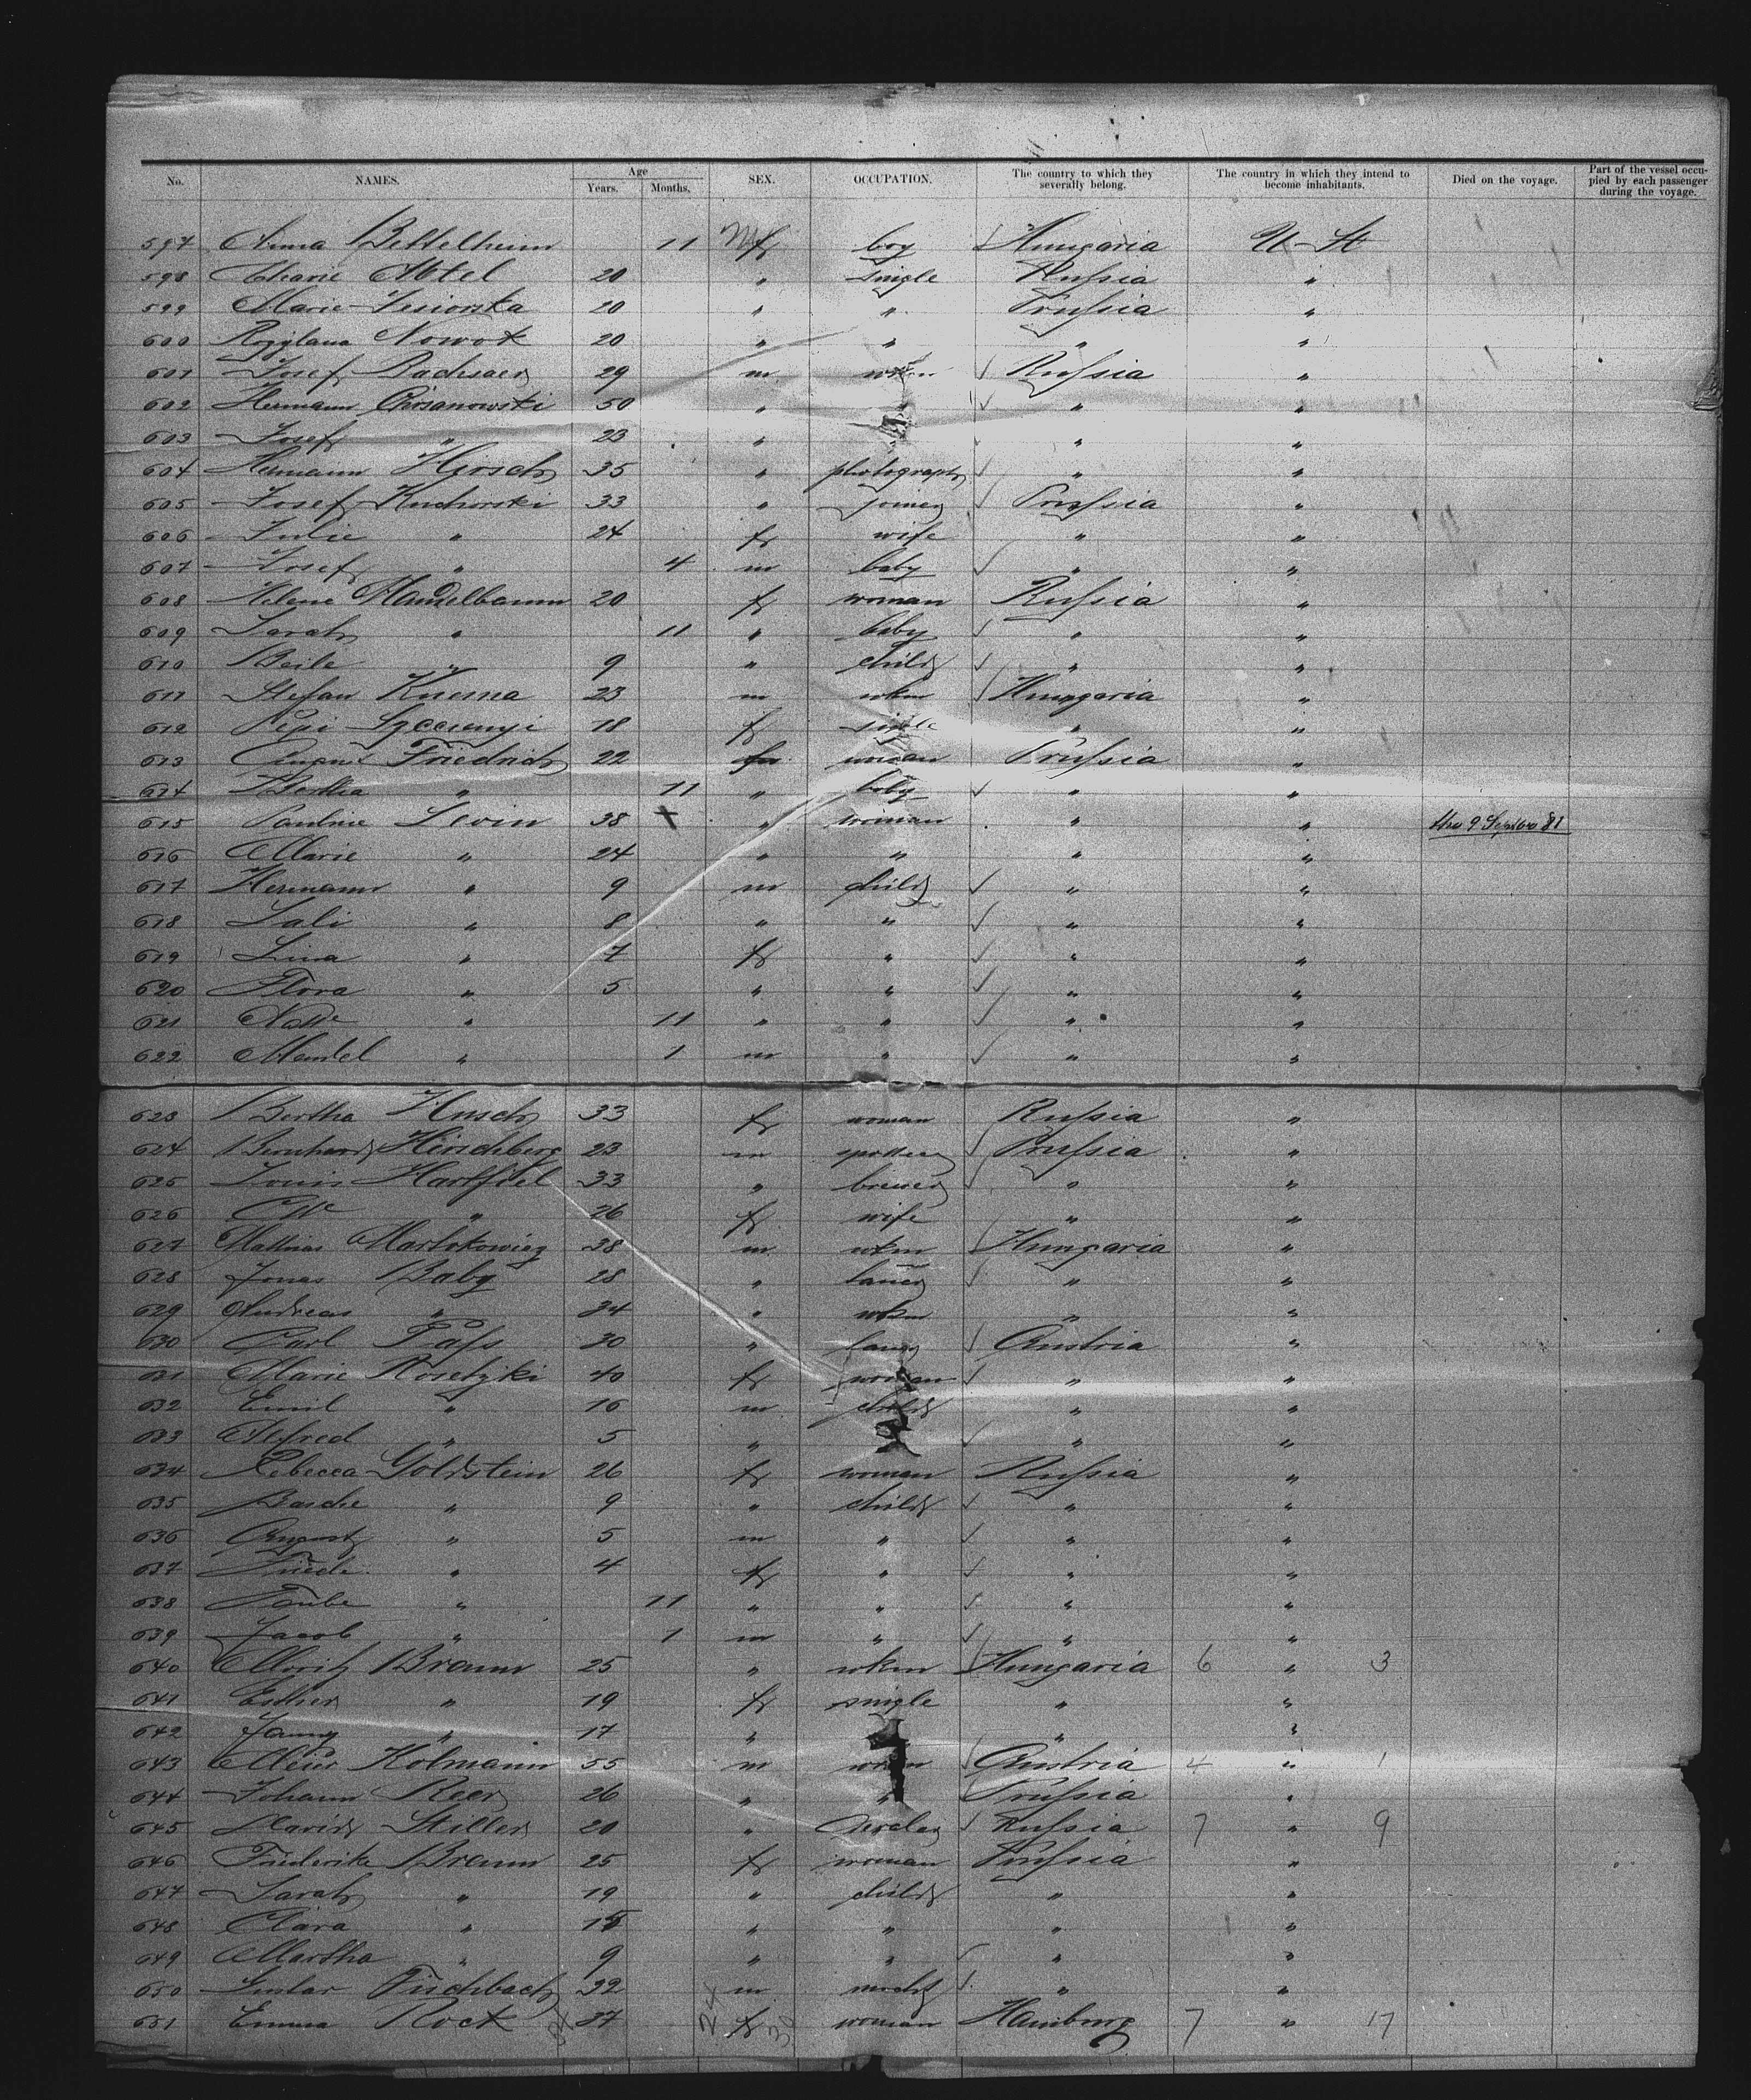 No. NAMES. Age Years. Months. SEX. OCCUPATION. The country to which they severally belong. The country in which they intend to become inhabitants. Died on the voyage. Part of the vessel occupied by each passenger during the voyage.
597 Anna Bettelheim 11 f boy Hungaria U-St
598 20 " single Russia "
599 Marie 20 " " Prussia "
600 Nowok 20 " " " "
601 Josef 29 m wkm Russia "
602 Hermann 50 " " " "
603 Josef " 23 " " "
604 Hermann Hirsch 35 " photograph " "
605 Josef Kuchorski 33 " joiner Prussia "
606 Julie " 24 f wife " "
607 Josef " 4 m baby " "
608 Helene Mandelbaum 20 f woman Russia "
609 Sarah " 11 " baby " "
610 Beile " 9 " child " "
611 Stefan 23 m wkm Hungaria "
612 Pepi 18 f single " "
613 August Friedrich 22 woman Prussia "
614 Bertha " 11 " baby " "
615 Pauline Levin 38 " woman " " the 9 Septber 81
616 Marie " 24 " " " "
617 Hermann " 9 m child " "
618 Sali " 8 " " " "
619 Lina " 7 f " " "
620 Flora " 5 " " " "
621 " 11 " " " "
622 Mendel " 1 m " " "
623 Bertha 33 f woman Russia "
624 Bernhard Hirschberg 23 m Prussia "
625 Louis Hartfiel 33 " brewer " "
626 " 26 f wife " "
627 Mathias 38 m wkm Hungaria "
628 Jonas Baby 28 " " "
629 Andreas " 34 " wkm " "
630 Carl Pass 30 " Austria "
631 Marie 40 f woman " "
632 Emil " 16 m child " "
633 Alfred " 5 " " "
634 Rebecca Goldstein 26 f woman Russia "
635 Basche " 9 " child " "
636 August " 5 m " " "
637 Friede " 4 f " " "
638 Taube " 11 " " " "
639 Jacob " 1 m " " "
640 Moritz Braun 25 " wkm Hungaria 6 " 3
641 Esther " 19 f single " "
642 Fanny " 17 " " "
643 Kolmann 55 m wkm Austria 4 " 1
644 Johann 26 " " Prussia "
645 David Stiller 20 " Russia 7 " 9
646 Friederike Braun 25 f woman Prussia "
647 Sarah " 19 " child " "
648 Clara " " " " "
649 Martha " 9 " " " "
650 Gustav Fischbach 32 m " "
651 Emma Rock 37 f woman Hamburg 7 " 17